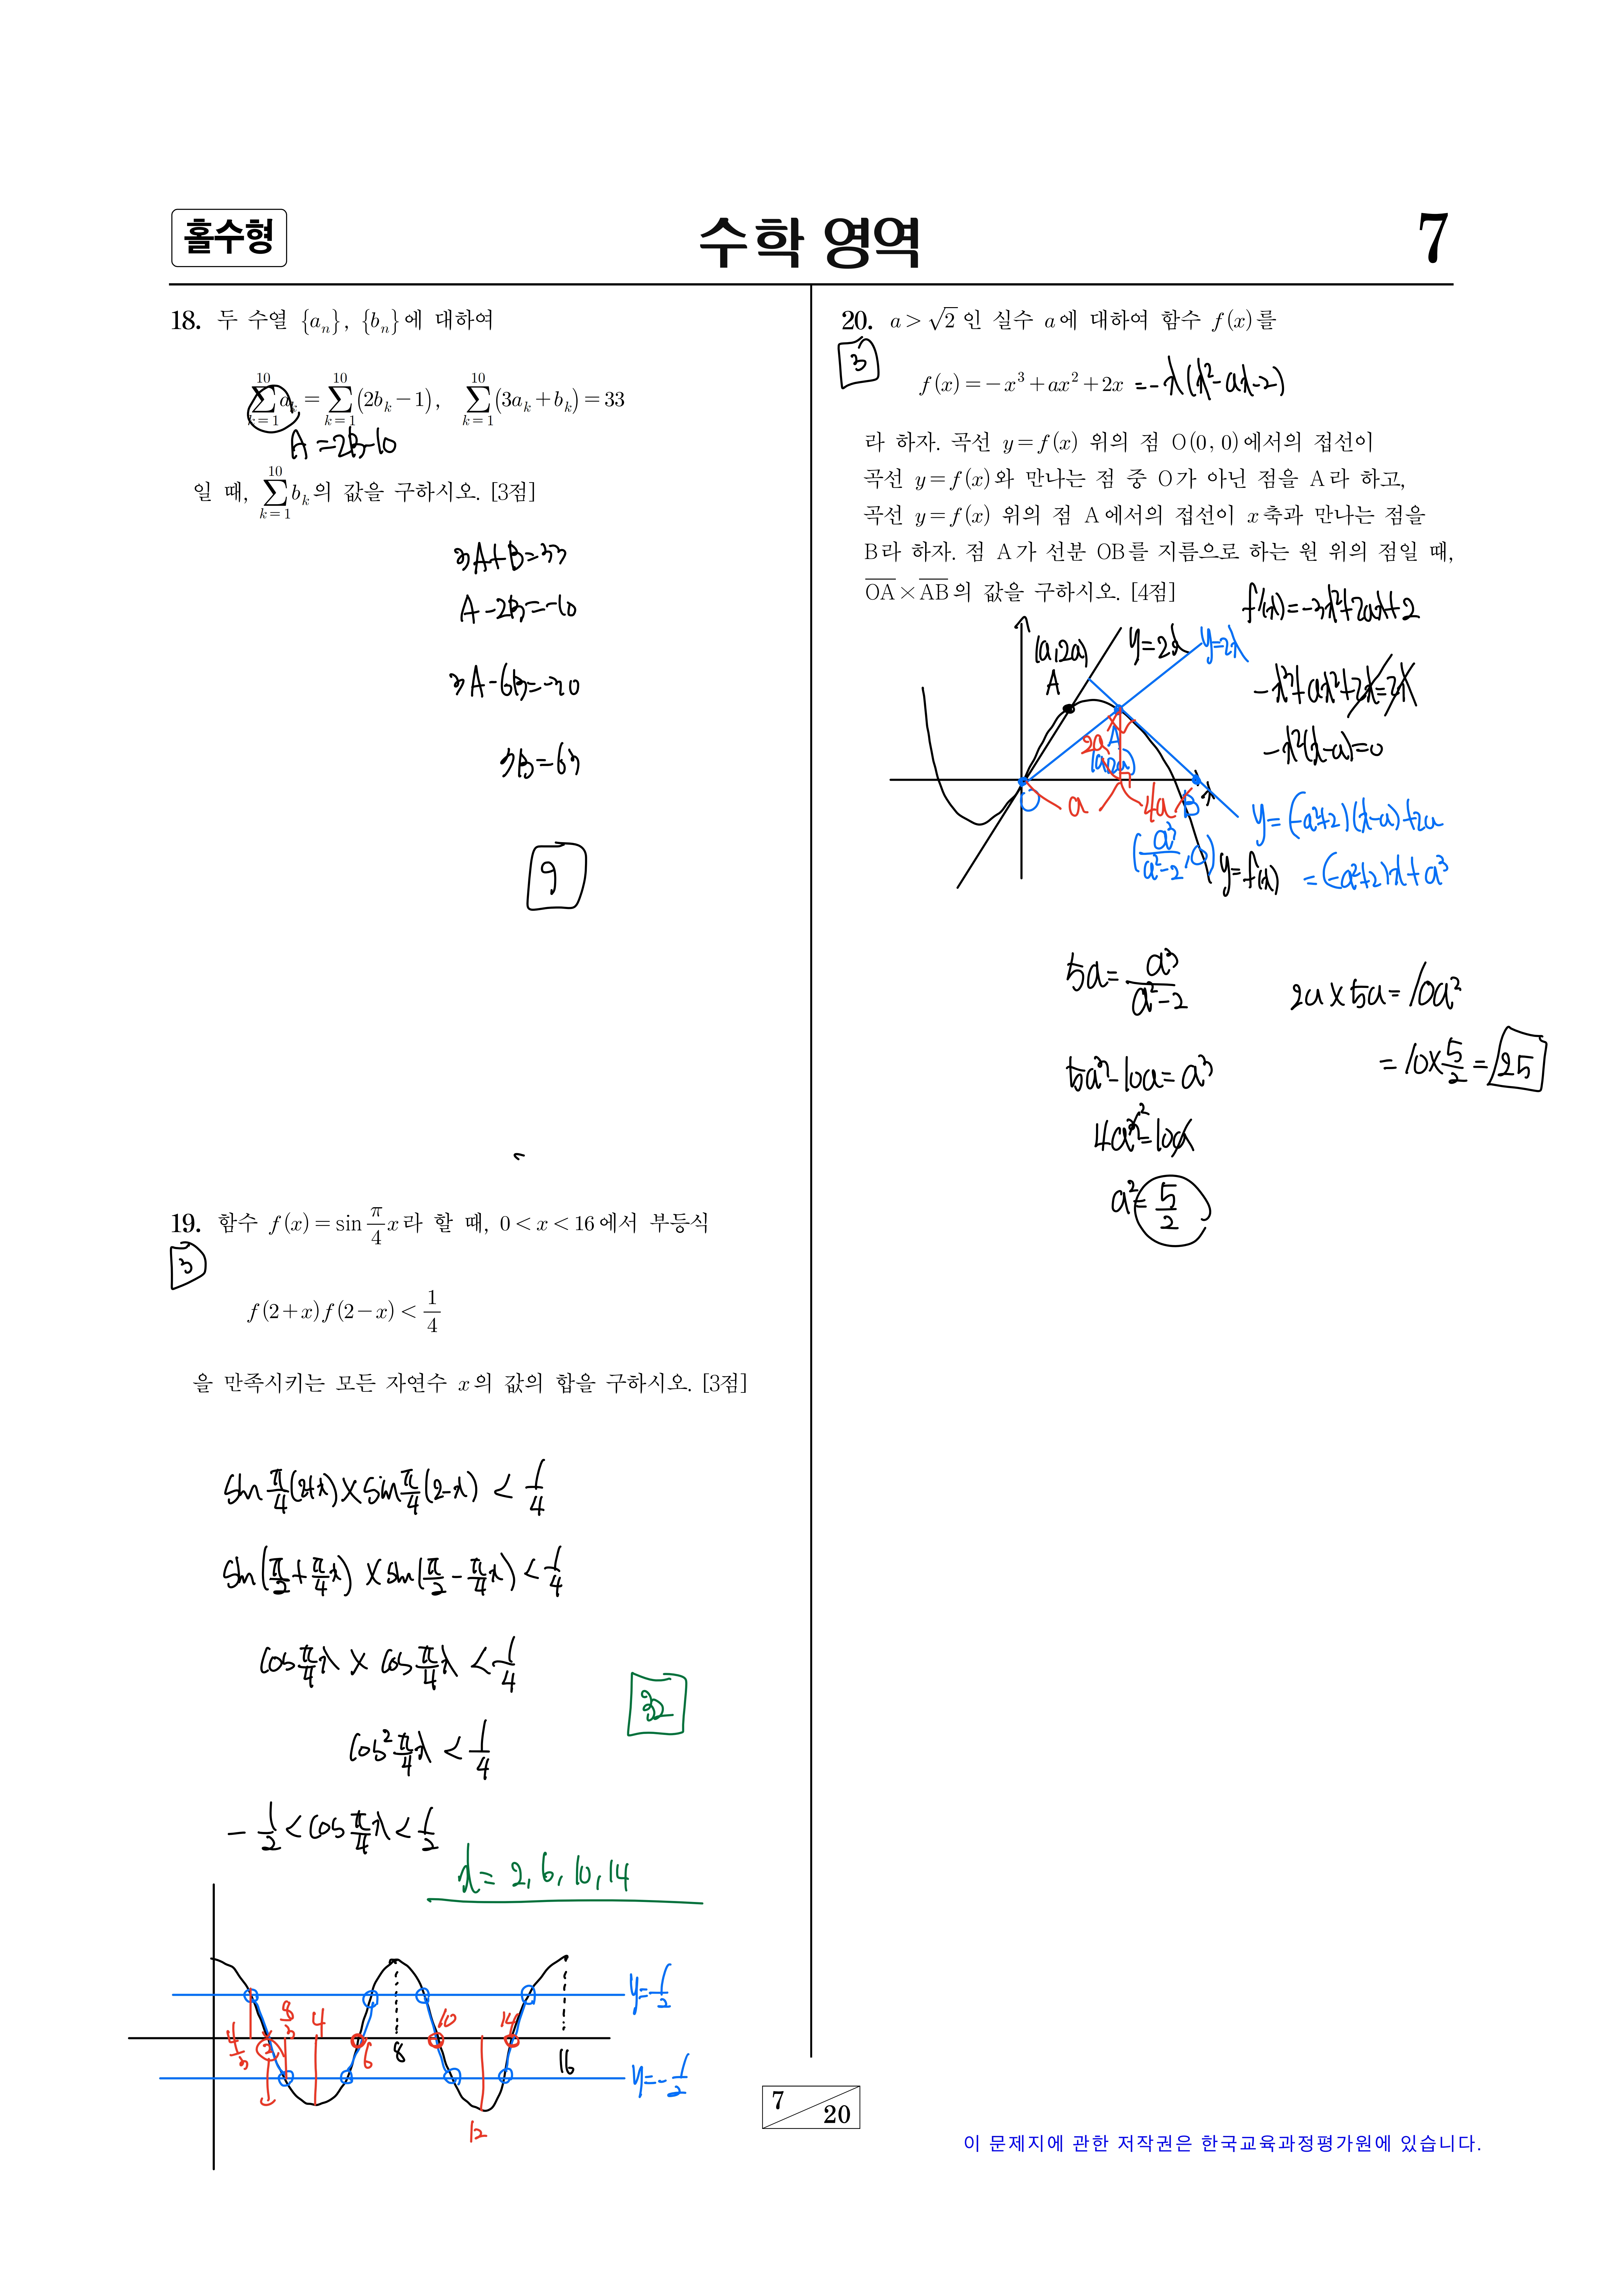 홀수형
수학 영역
7
18. 두 수열 {aₙ}, {bₙ}에 대하여
∑_{k=1}^{10} aₖ = ∑_{k=1}^{10} (2bₖ−1), ∑_{k=1}^{10} (3aₖ+bₖ)=33
A=2B-10
일 때, ∑_{k=1}^{10} bₖ의 값을 구하시오. [3점]
3A+B=33
A-2B=-10
3A-6B=-30
7B=63
9
19. 함수 f(x)=sin π/4 x라 할 때, 0<x<16에서 부등식
3
f(2+x)f(2−x)<1/4
을 만족시키는 모든 자연수 x의 값의 합을 구하시오. [3점]
sin π/4(2+x)×sin π/4(2-x) < 1/4
sin(π/2+π/4x) ×sin(π/2-π/4x)<1/4
cos π/4x × cos π/4x <1/4
32
cos² π/4x < 1/4
-1/2<cos π/4x<1/2
x= 2, 6, 10, 14
y=1/2
4/3 8/3 4 6 8 10 14 16
2
y=-1/2
12
20. a>√2인 실수 a에 대하여 함수 f(x)를
3
f(x)=−x³+ax²+2x =-x(x²-ax-2)
라 하자. 곡선 y=f(x) 위의 점 O(0, 0)에서의 접선이
곡선 y=f(x)와 만나는 점 중 O가 아닌 점을 A라 하고,
곡선 y=f(x) 위의 점 A에서의 접선이 x축과 만나는 점을
B라 하자. 점 A가 선분 OB를 지름으로 하는 원 위의 점일 때,
OA×AB의 값을 구하시오. [4점]
f'(x)=-3x²+2ax+2
(a,2a) y=2x y=2x
A
-x³+ax²+2x=2x
-x²(x-a)=0
2a A
(a,2a)
O a 4a B x
y=(-a²+2)(x-a)+2a
(a³/a²-2, 0)
y=f(x) =(-a²+2)x+a³
5a= a³/a²-2
2a×5a=10a²
=10×5/2=25
5a³-10a=a³
4a³=10a
2
a²=5/2
7
20
이 문제지에 관한 저작권은 한국교육과정평가원에 있습니다.